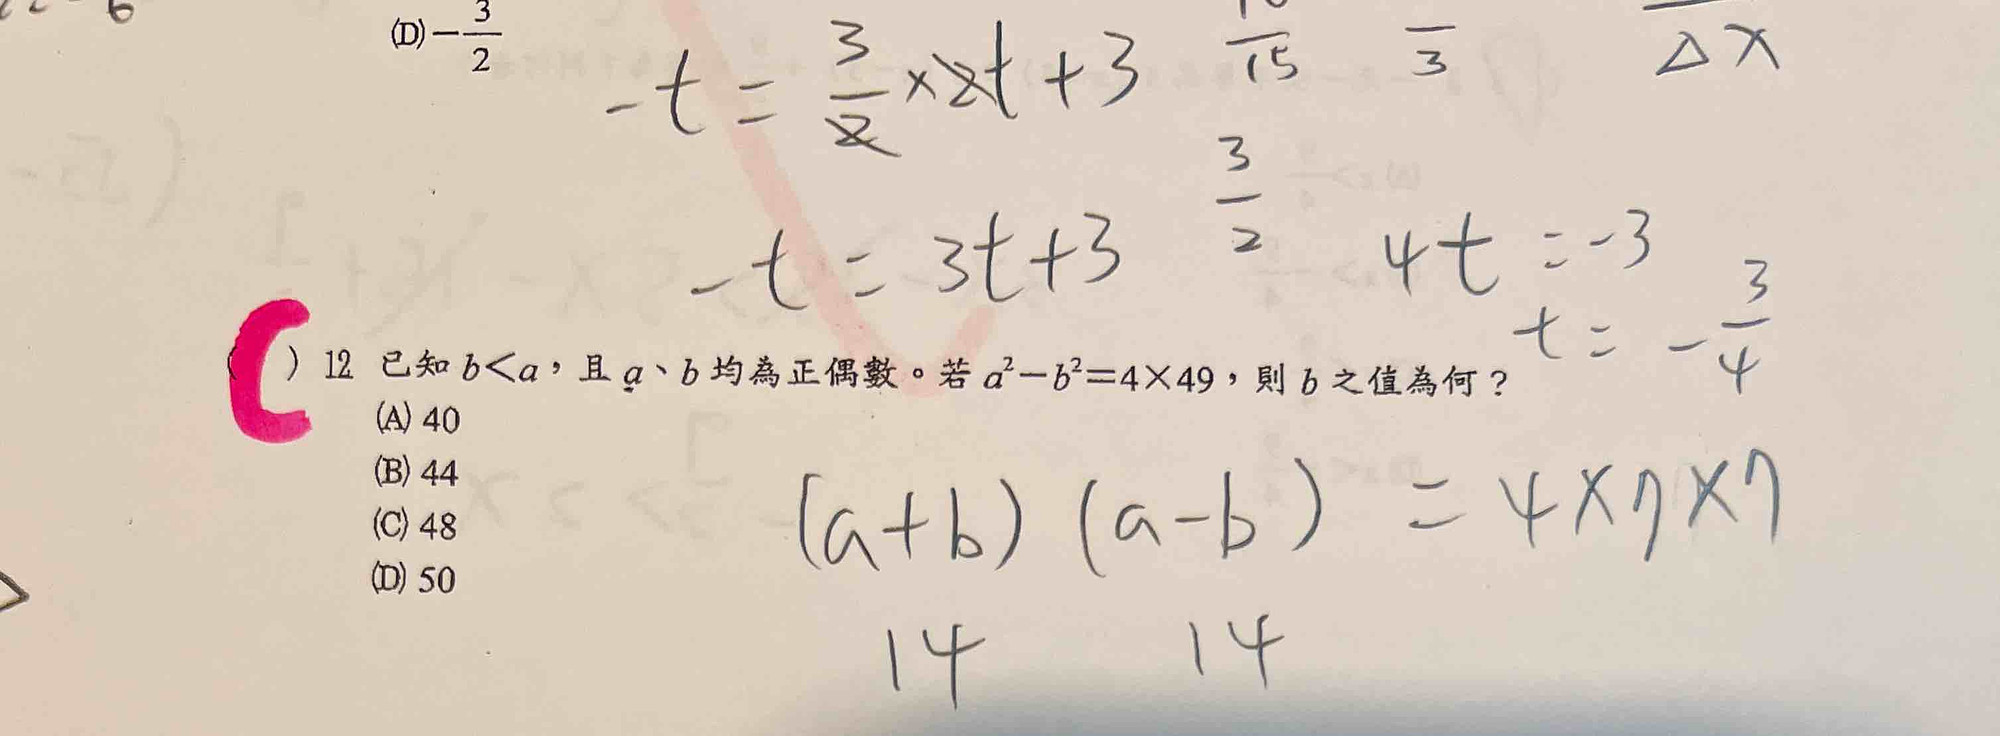 (D) -3/2
-t = 3/2 × 2t + 3
15
3
Δx
-t = 3t + 3
3/2
4t = -3
t = -3/4
( C ) 12 已知 b<a，且 a、b 均為正偶數。若 a²-b²=4×49，則 b 之值為何？
(A) 40
(B) 44
(C) 48
(D) 50
(a+b) (a-b) = 4×7×7
14 14